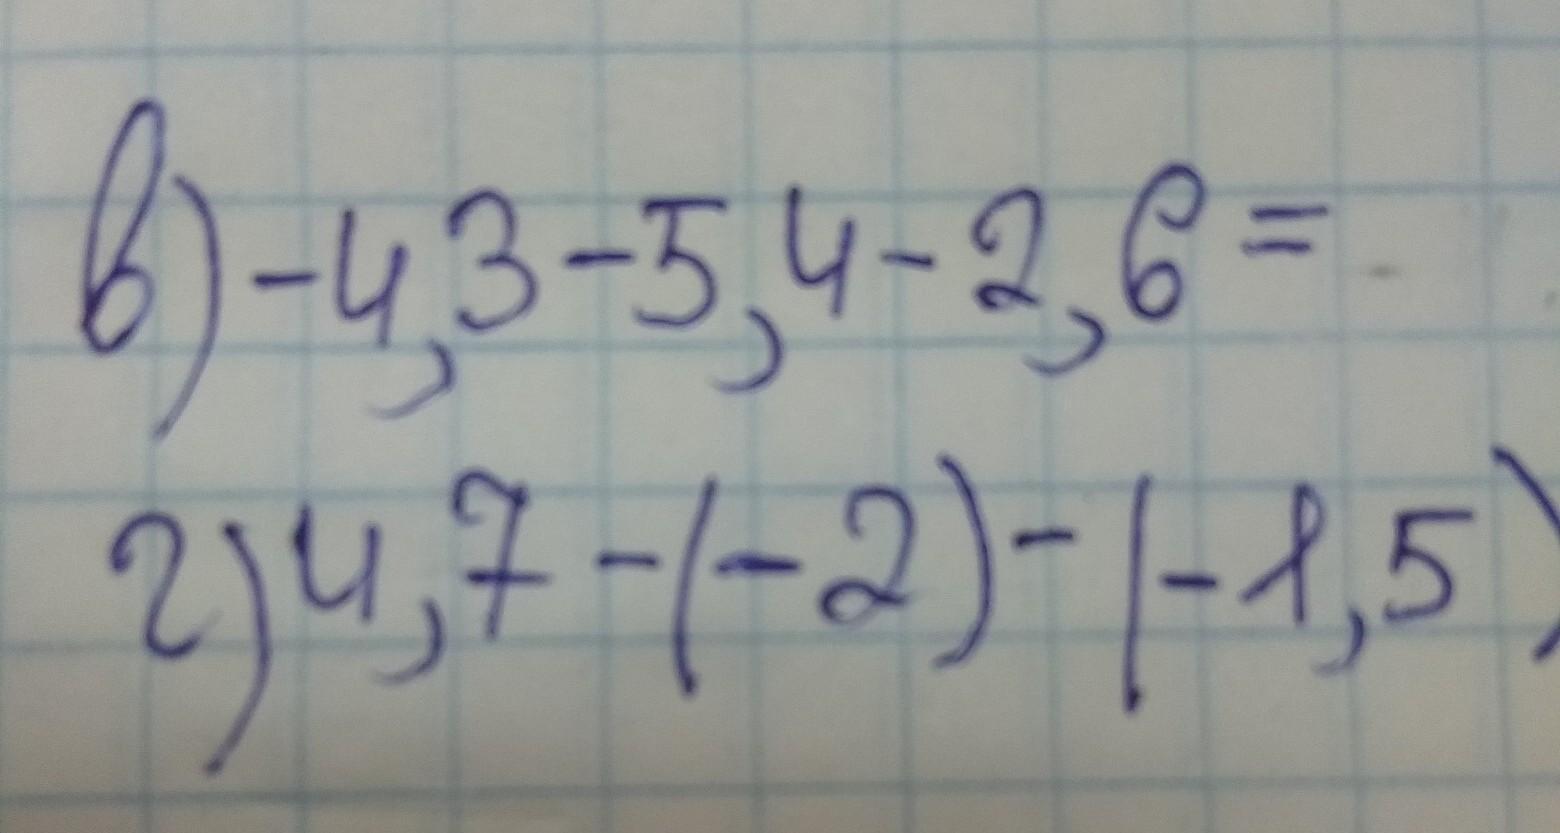 в) -4,3-5,4-2,6=
г) 4,7-(-2)-(-1,5)